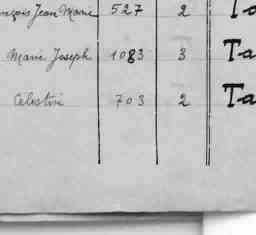 Jean Marie 527 2 Ta
Marie Joseph 1083 3 Ta
Celestin 703 2 Ta